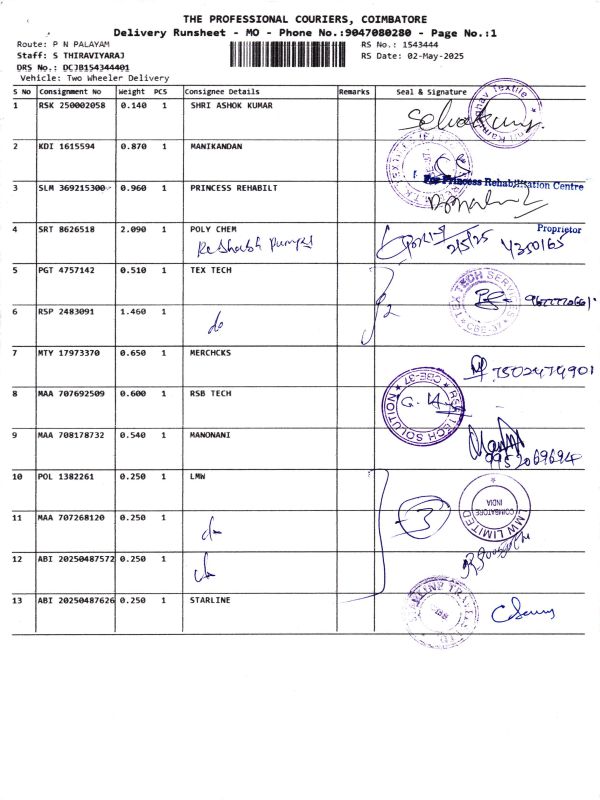 THE PROFESSIONAL COURIERS, COIMBATORE
Delivery Runsheet - MO - Phone No.:9047080280 - Page No.:1
Route: P N PALAYAM RS No.: 1543444
Staff: S THIRAVIYARAJ RS Date: 02-May-2025
DRS No.: DCJB154344401
Vehicle: Two Wheeler Delivery
S No Consignment No Weight PCS Consignee Details Remarks Seal & Signature
1 RSK 250002058 0.140 1 SHRI ASHOK KUMAR
2 KDI 1615594 0.870 1 MANIKANDAN
3 SLM 369215300 0.960 1 PRINCESS REHABILT For Princess Rehabilitation Centre
Proprietor
4 SRT 8626518 2.090 1 POLY CHEM 2/5/25
5 PGT 4757142 0.510 1 TEX TECH TEX TECH SERVICES CBE-37
6 RSP 2483091 1.460 1 do 2
7 MTY 17973370 0.650 1 MERCHCKS 7502479901
8 MAA 707692509 0.600 1 RSB TECH RSB TECH SOLUTION CBE-37
9 MAA 708178732 0.540 1 MANONANI 9952069694
10 POL 1382261 0.250 1 LMW LMW LIMITED COIMBATORE INDIA
11 MAA 707268120 0.250 1 do 3
12 ABI 20250487572 0.250 1 do
13 ABI 20250487626 0.250 1 STARLINE